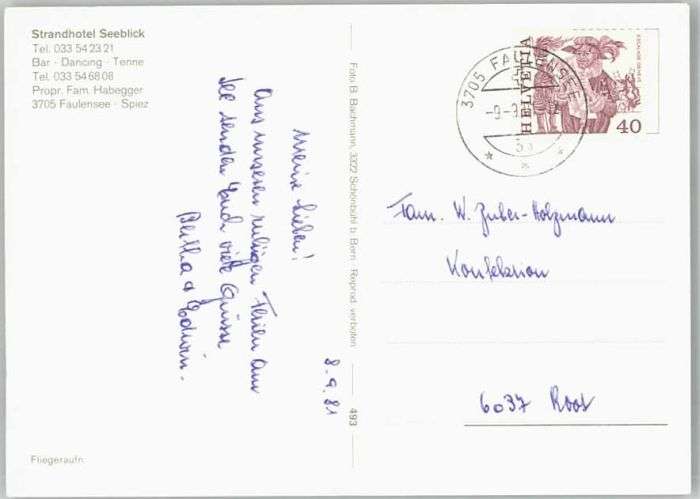 Strandhotel Seeblick
Tel. 033 54 23 21
Bar - Dancing - Tenne
Tel. 033 54 68 08
Propr. Fam. Habegger
3705 Faulensee - Spiez
Fliegeraufn.
Meine Lieben!
Aus unseren ruhigen Ferien am
See senden Euch viele Grüsse
Bertha & Edwin.
8.9.81
Foto B. Bachmann, 3322 Schönbühl b. Bern Reprod. verboten 493
3705 FAULENSEE
-9-9
HELVETIA
ESCALADE GENEVE
40
Fam. W. Zuber-Holzmann
Konfektion
6037 Root